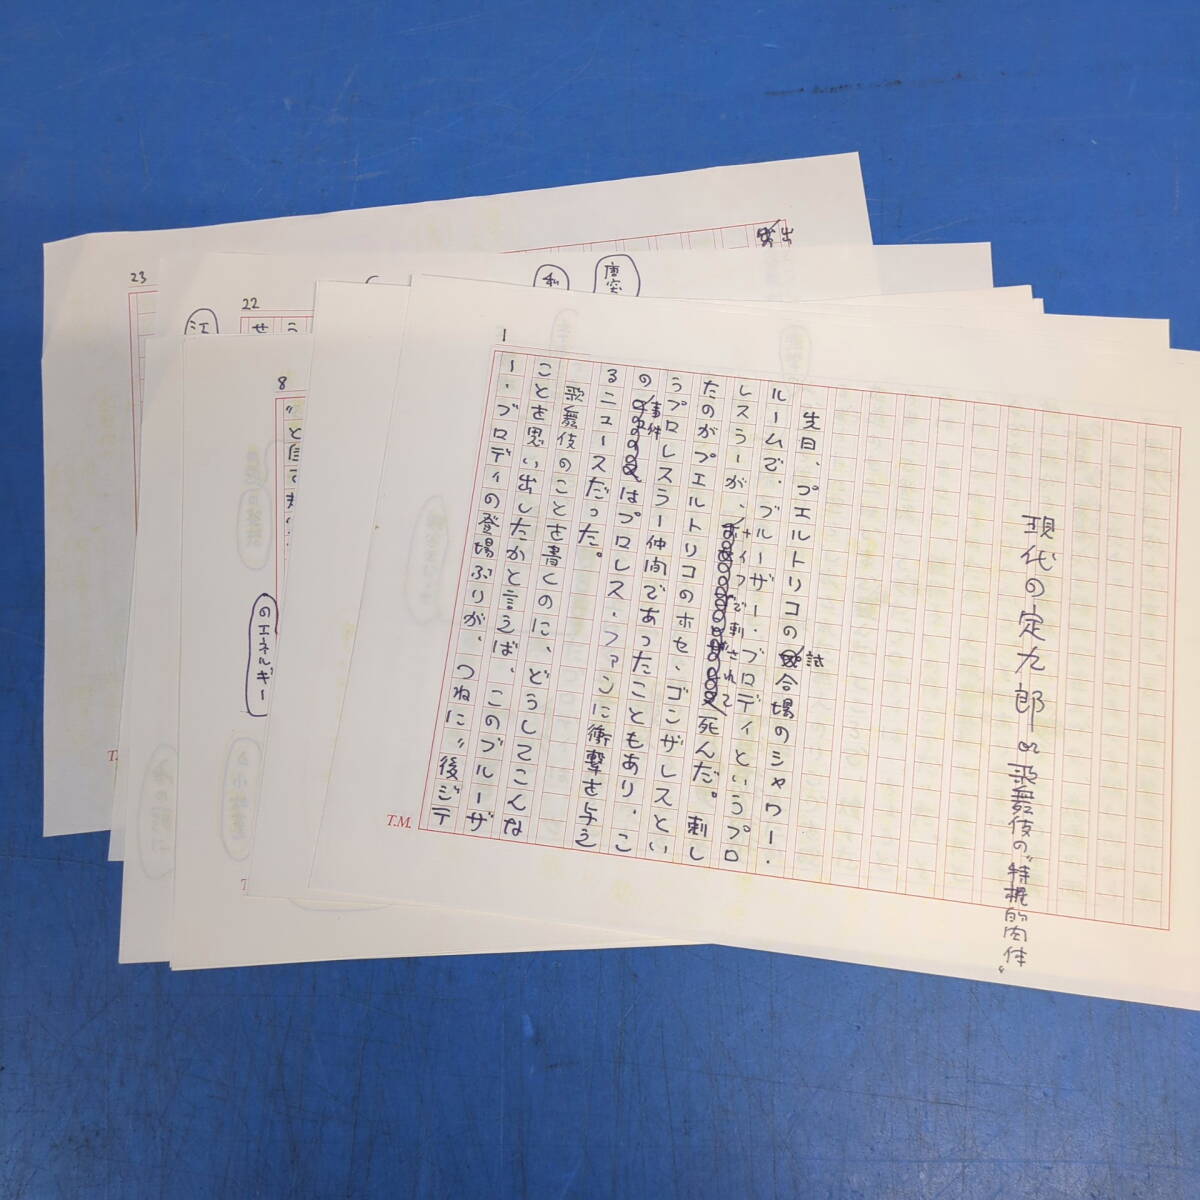 現代の定九郎 or 歌舞伎の〝特権的肉体〟
1
先日、プエルトリコの試合場のシャワー・
ルームで、ブルーザー・ブロディというプロ
レスラーが、ナイフで刺されて死んだ。刺し
たのがプエルトリコのホセ、ゴンザレスとい
うプロレスラー仲間であったこともあり、こ
の事件はプロレス・ファンに衝撃を与え
るニュースだった。
歌舞伎のことを書くのに、どうしてこんな
ことを思い出したかと言えば、このブルーザ
ー・ブロディの登場ぶりが、つねに〝後ジテ
T.M.
唐突
私
22
せ
う
江
23
出
8
〝と自
のエネルギー
T.